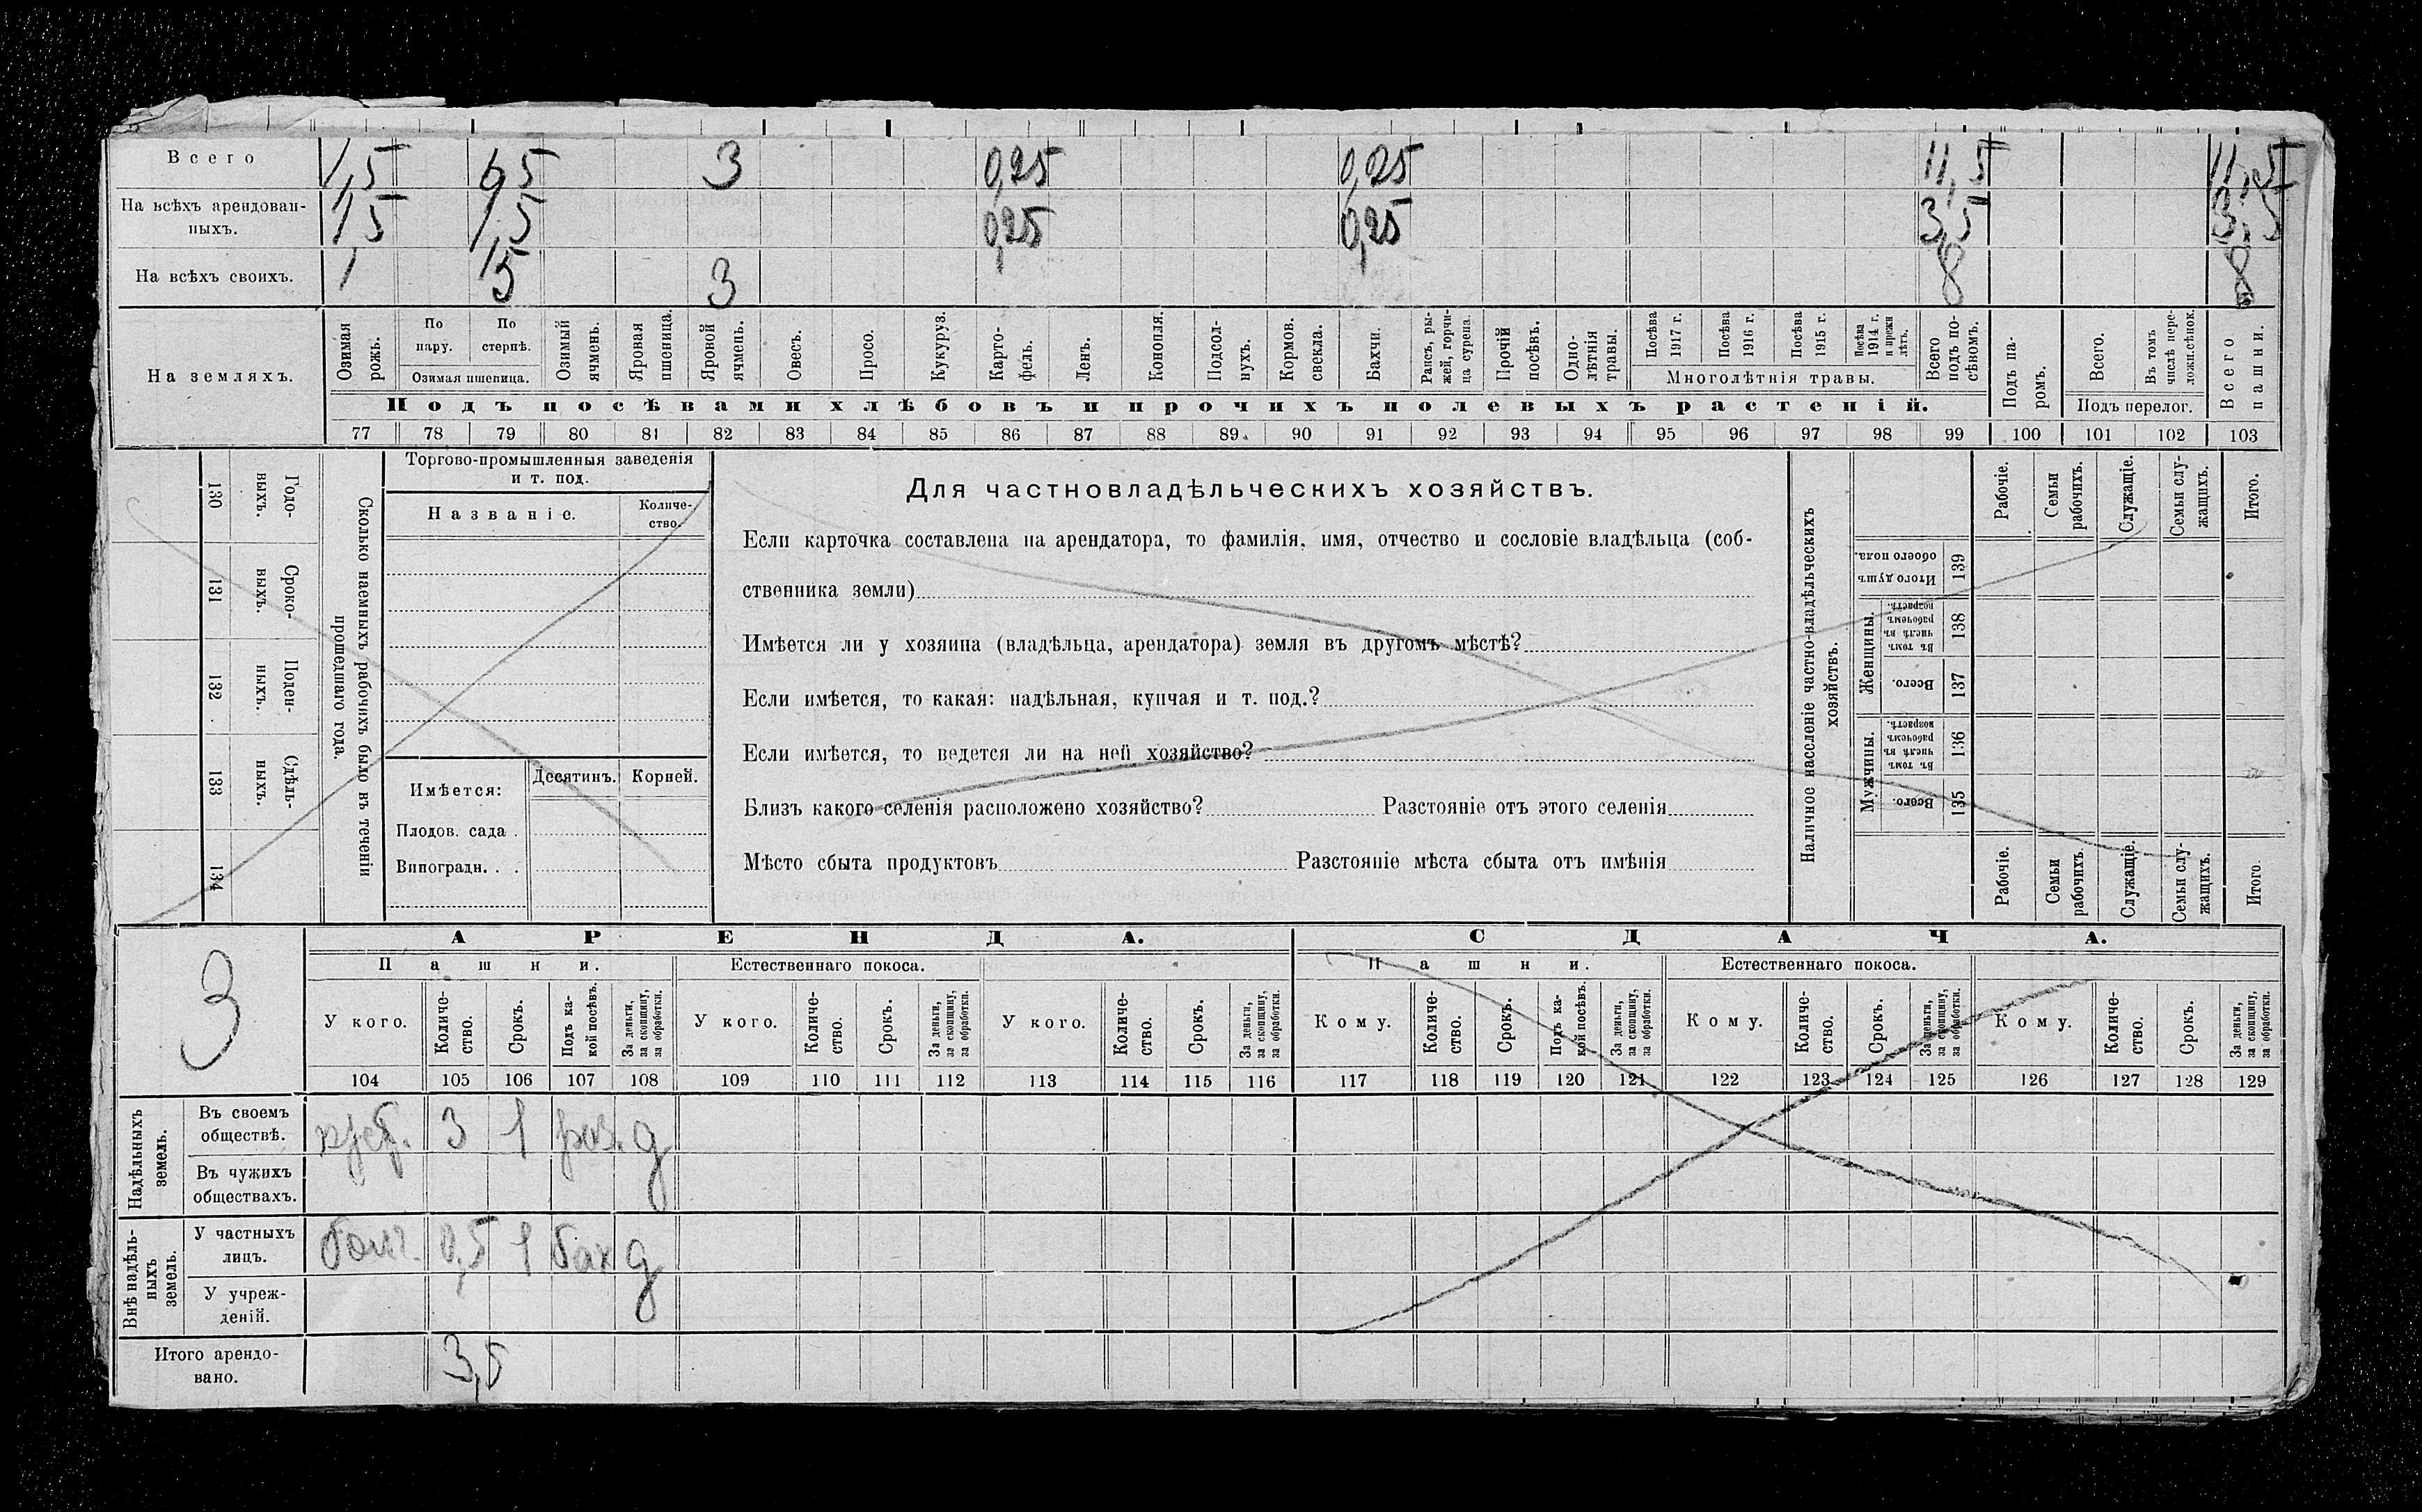 Всего 1,5 6,5 3 0,25 0,25 11,5 11,5
На всѣхъ арендован-
ныхъ. 1,5 1,5 0,25 0,25 3,5 3,5
На всѣхъ своихъ. 5 3 8 8
На земляхъ.
Озимая рожь.
По пару.
По стернѣ.
Озимая пшеница.
Озимый ячмень.
Яровая пшеница.
Яровой ячмень.
Овесъ.
Просо.
Кукуруз.
Карто-
фель.
Ленъ.
Конопля.
Подсол-
нухъ.
Кормов. свекла.
Бахчи.
Рапсъ, ры-
жей, горчи-
ца сурепа.
Прочій посѣвъ.
Одно-
лѣтнія травы.
Посѣва 1917 г.
Посѣва 1916 г.
Посѣва 1915 г.
Посѣва 1914 г. и прежн лѣтъ.
Многолѣтнія травы.
Всего подъ по-
сѣвомъ.
Подъ па-
ромъ.
Всего.
Въ томъ числѣ пере-
ложн.сѣнок.
Подъ перелог.
Всего пашни.
Подъ посѣвами хлѣбовъ и прочихъ полевыхъ растеній.
77 78 79 80 81 82 83 84 85 86 87 88 89 90 91 92 93 94 95 96 97 98 99 100 101 102 103
130 Годо-
ныхъ.
131 Сроко-
ныхъ.
132 Поден-
ныхъ.
133 Сдѣль-
ныхъ.
134
Сколько наемныхъ рабочихъ было въ теченіи
прошедшаго года.
Торгово-промышленныя заведенія
и т. под.
Названіе.
Количе-
ство.
Имѣется:
Десятинъ.
Корней.
Плодов. сада .
Виноградн. . .
Для частновладѣльческихъ хозяйствъ.
Если карточка составлена на арендатора, то фамилія, имя, отчество и сословіе владѣльца (соб-
ственника земли)
Имѣется ли у хозяина (владѣльца, арендатора) земля въ другомъ мѣстѣ?
Если имѣется, то какая: надѣльная, купчая и т. под.?
Если имѣется, то ведется ли на ней хозяйство?
Близъ какого селенія расположено хозяйство? Разстояніе отъ этого селенія
Мѣсто сбыта продуктовъ Разстояніе мѣста сбыта отъ имѣнія
Наличное населеніе частно-владѣльческихъ
хозяйствъ.
Рабочіе.
Семьи рабочихъ.
Служащіе.
Семьи слу-
жащихъ.
Итого.
Итого душъ обоего пола.
139
Женщины.
Въ томъ числѣ въ рабочемъ возрастѣ.
138
Всего.
137
Мужчины.
Въ томъ числѣ въ рабочемъ возрастѣ.
136
Всего.
135
Рабочіе.
Семьи рабочихъ
Служащіе.
Семьи слу-
жащихъ.
Итого
3
АРЕНДА.
СДАЧА.
Пашни.
Естественнаго покоса.
Пашни.
Естественнаго покоса.
У кого.
Количе-
ство.
Срокъ.
Подъ ка-
кой посѣвъ.
За деньги, за скопщину, за обработки.
У кого.
Количе-
ство.
Срокъ.
За деньги, за скопщину, за обработки.
У кого.
Количе-
ство.
Срокъ.
За деньги, за скопщину, за обработки.
Кому.
Количе-
ство.
Срокъ.
Подъ ка-
кой посѣвъ.
За деньги, за скопщину, за обработки.
Кому.
Количе-
ство.
Срокъ.
За деньги, за скопщину, за обработки.
Кому.
Количе-
ство.
Срокъ.
За деньги, за скопщину, за обработки.
104 105 106 107 108 109 110 111 112 113 114 115 116 117 118 119 120 121 122 123 124 125 126 127 128 129
Надѣльныхъ
земель.
Въ своемъ
обществѣ. 3 1 раз. д
Въ чужихъ
обществахъ.
Внѣ надѣль-
ныхъ
земель.
У частныхъ
лицъ. 0,5 1 бах д
У учреж-
деній.
Итого арендо-
вано. 3,5